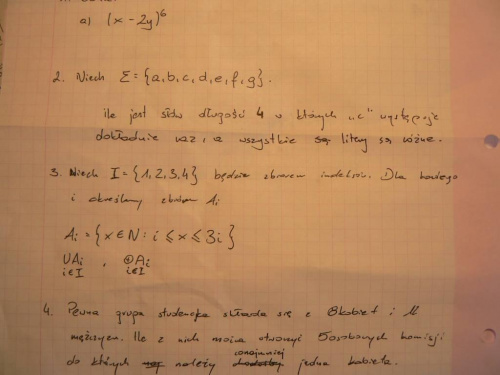 a) (x - 2y)⁶
2. Niech Σ = {a,b,c,d,e,f,g}.
ile jest słów długości 4 w których „c" występuje
dokładnie raz, a wszystkie są litery są różne.
3. Niech I = {1,2,3,4} będzie zbiorem indeksów. Dla każdego
i określmy zbiór Ai
Ai = {x ∈ N: i ≤ x ≤ 3i}
∪Ai , ⊕Ai
i∈I i∈I
4. Pewna grupa studencka składa się z 8 kobiet i 12
mężczyzn. Ile z nich można utworzyć 5osobowych komisji
conajmniej
do których należy jedna kobieta.